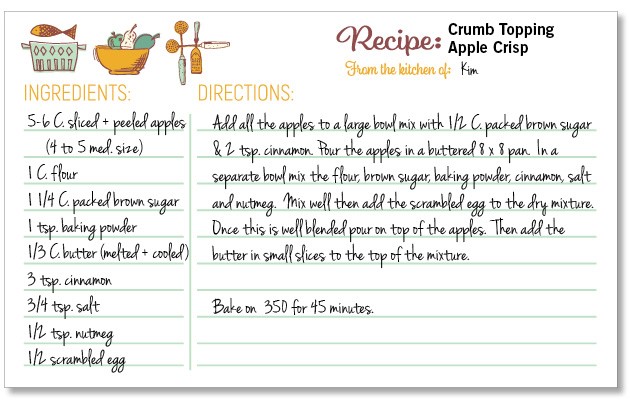 Recipe: Crumb Topping
Apple Crisp
From the kitchen of: Kim
INGREDIENTS:
5-6 C. sliced + peeled apples
(4 to 5 med. size)
1 C. flour
1 1/4 C. packed brown sugar
1 tsp. baking powder
1/3 C. butter (melted + cooled)
3 tsp. cinnamon
3/4 tsp. salt
1/2 tsp. nutmeg
1/2 scrambled egg
DIRECTIONS:
Add all the apples to a large bowl mix with 1/2 C. packed brown sugar
& 2 tsp. cinnamon. Pour the apples in a buttered 8 x 8 pan. In a
separate bowl mix the flour, brown sugar, baking powder, cinnamon, salt
and nutmeg. Mix well then add the scrambled egg to the dry mixture.
Once this is well blended pour on top of the apples. Then add the
butter in small slices to the top of the mixture.
Bake on 350 for 45 minutes.